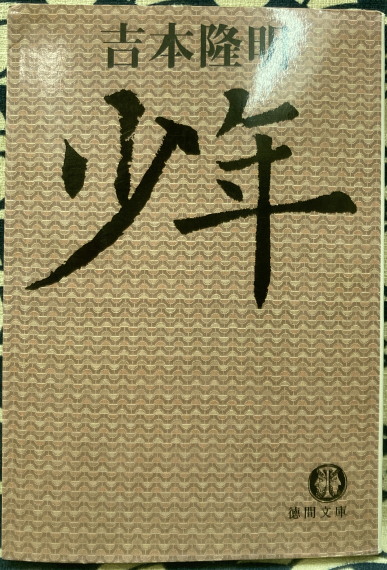 吉本隆明
少年
徳間文庫